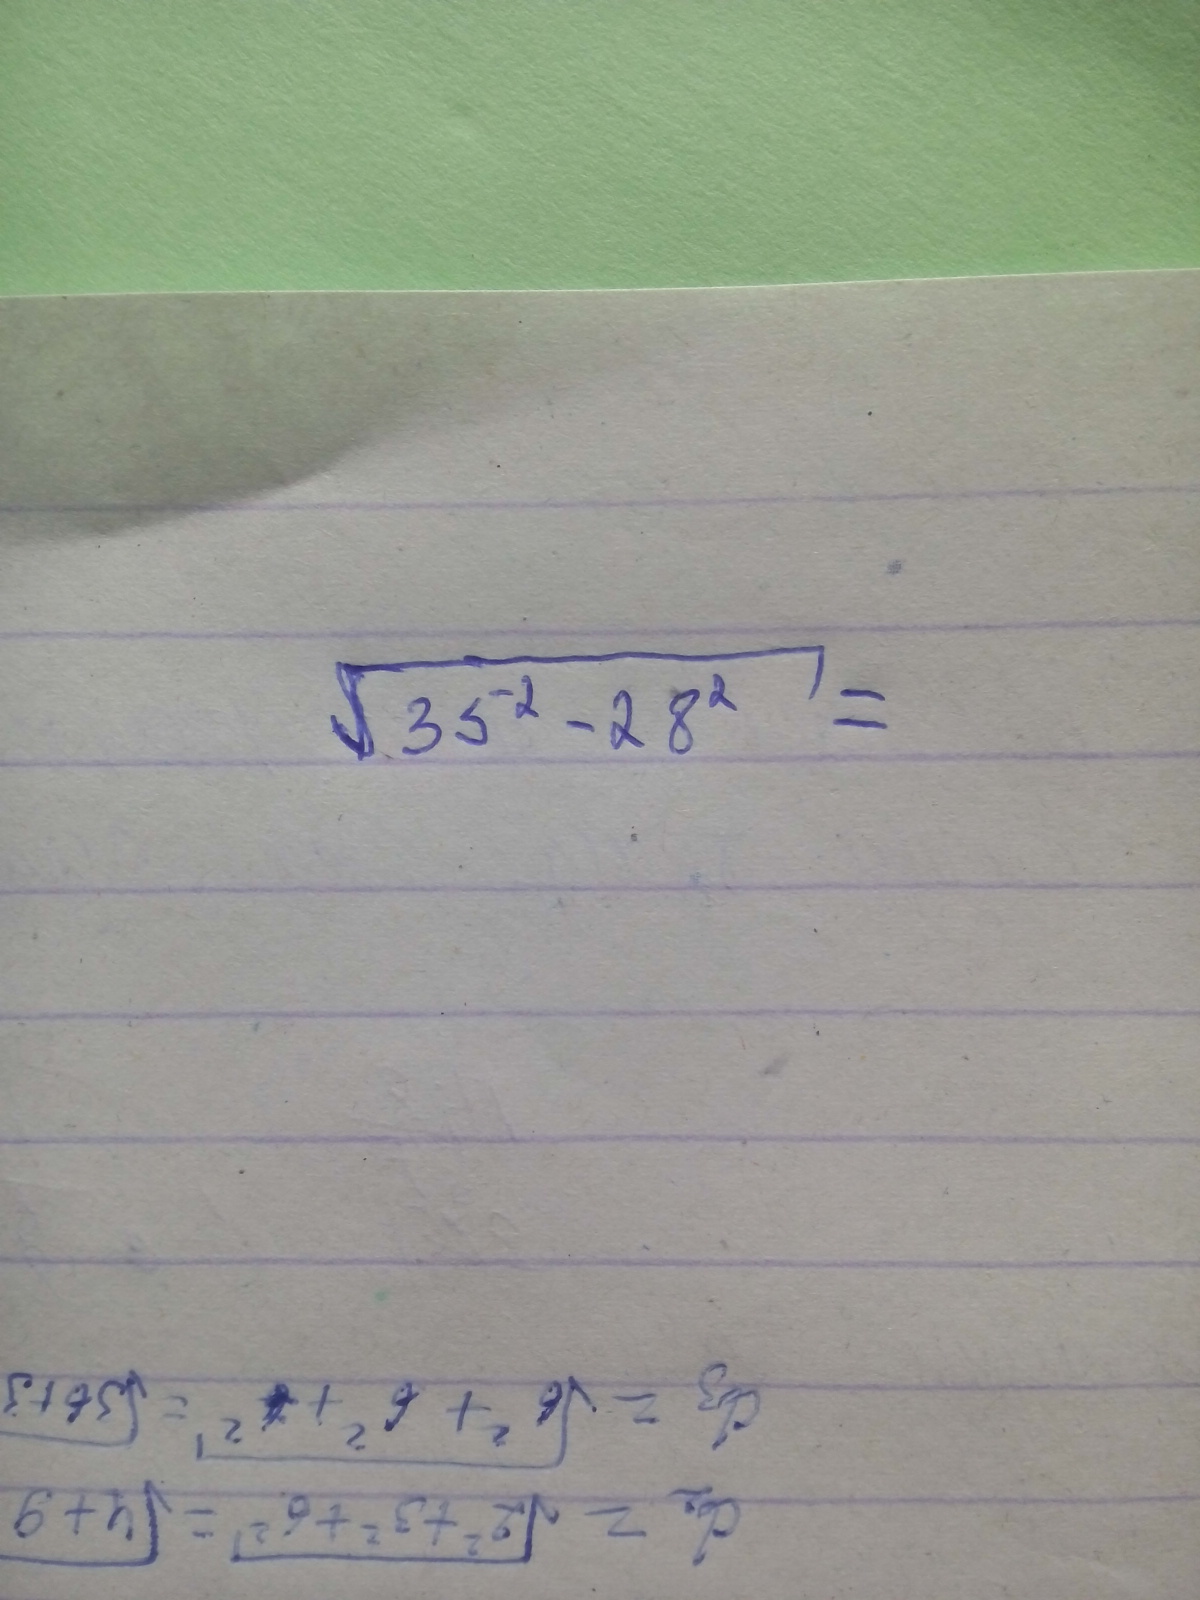 √35⁻² - 28² =
d₃ = √6² + 6² + ² = √36+3
d₂ = √2² + 3² + 6² = √4+9